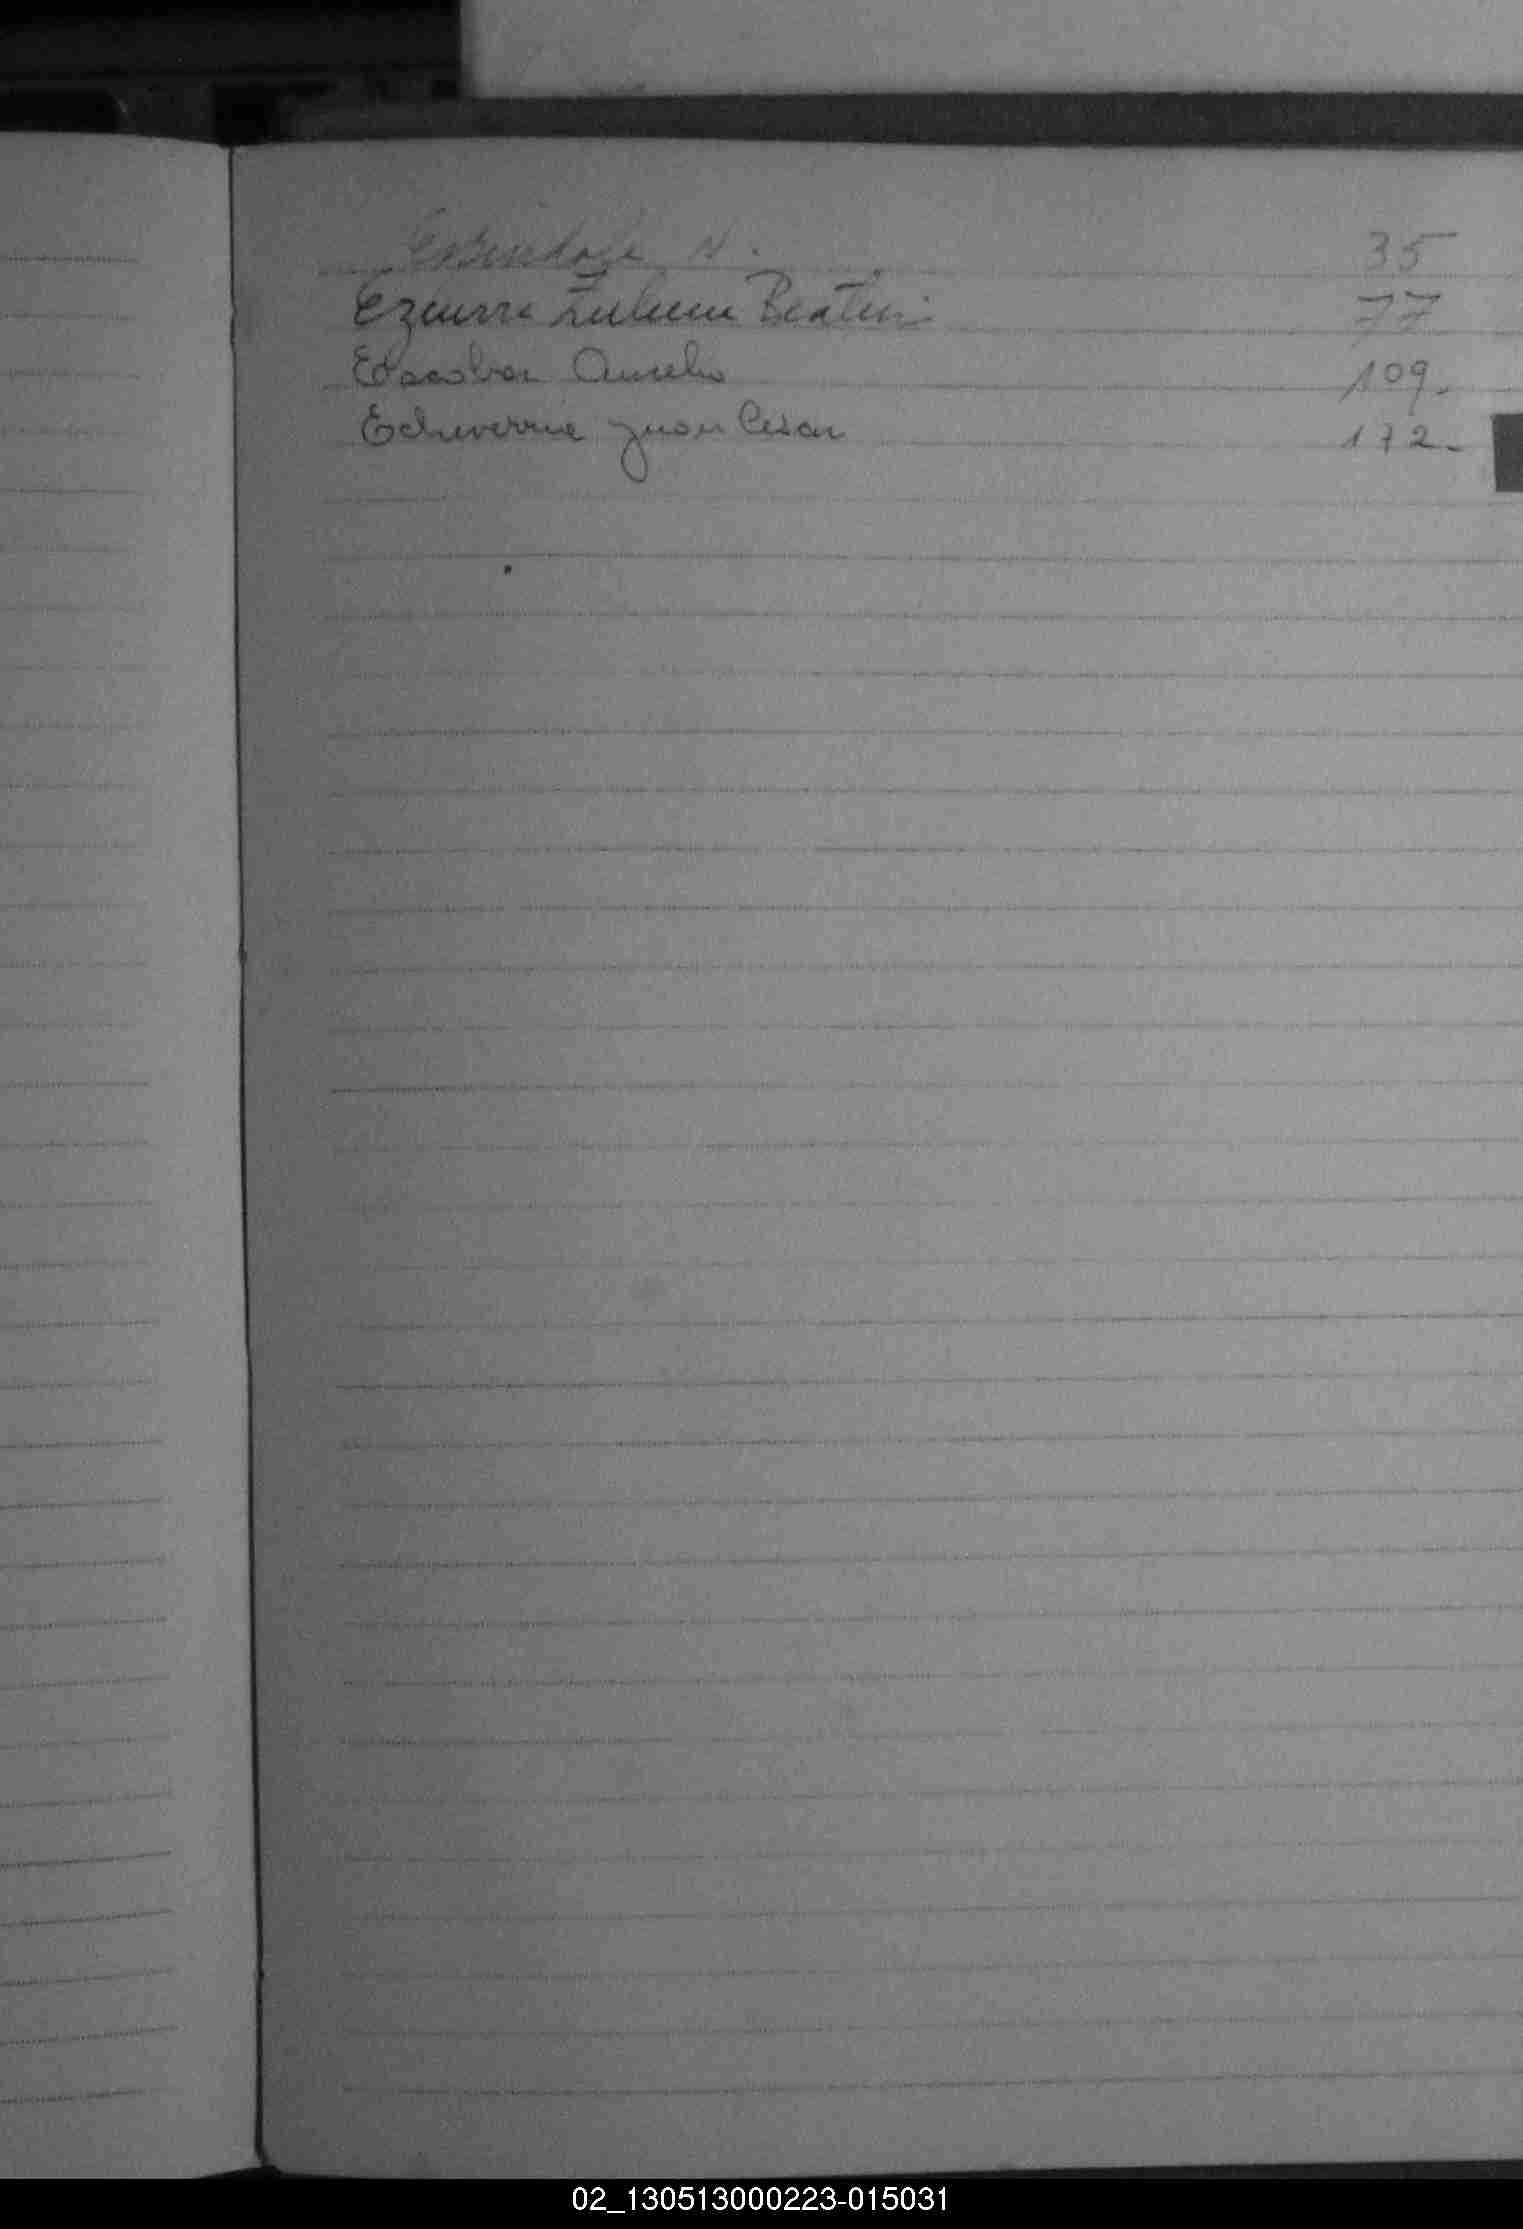 35
Ezcurra Zulema Beatriz 77
Escobar Aurelio 109.
Echeverria Juan Cesar 172.
02_130513000223-015031